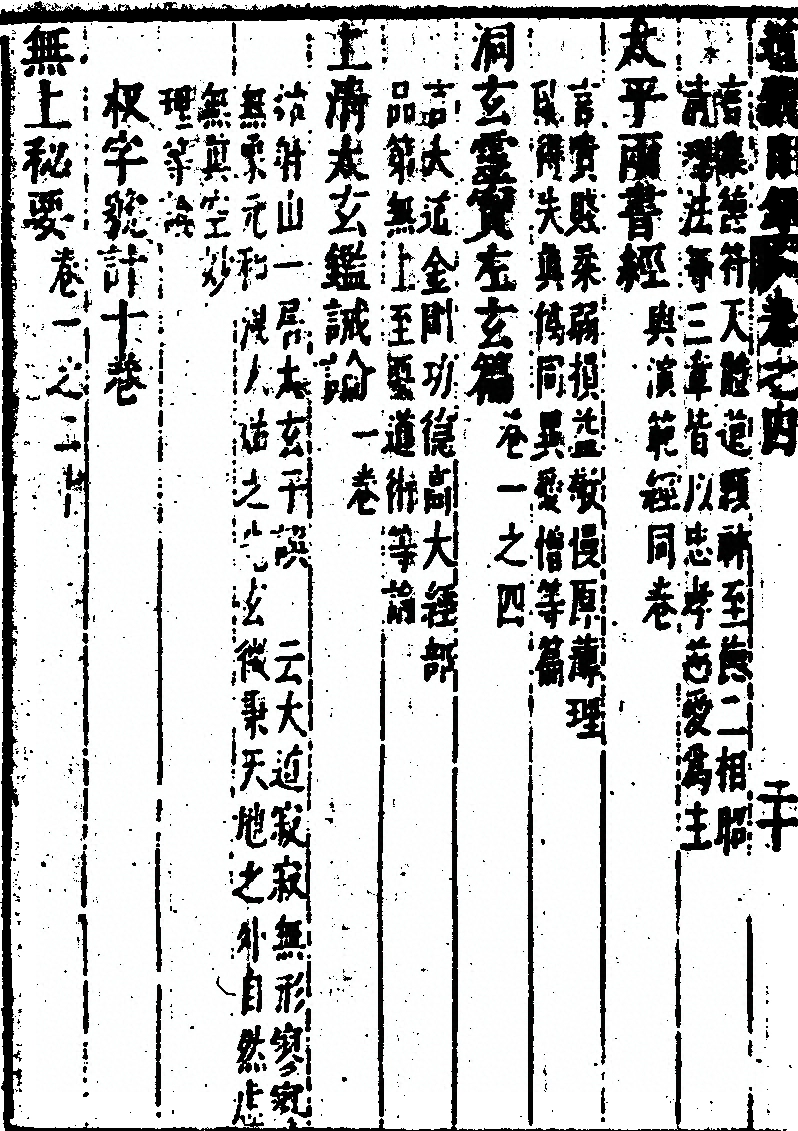 道藏目錄卷之四 三十
言集德符天證道顯神至德二相昭
清理法等三章皆以忠孝慈愛爲主
太平兩書經 與演範經同卷
言貴賤柔弱損益敬慢厚薄理
亂得失真僞同異愛憎等篇
洞玄靈寶左玄篇 卷一之四
言大道金則功德高大經部
品第無上至要道術等論
上清太玄鑑誡論 一卷
沽射山一居太玄子譔 云大道寂寂無形寥寥
無宗元和 之 玄微秉天地之外自然虛
無真空妙
理等論
杈字號計十卷
無上秘要 卷一之二十